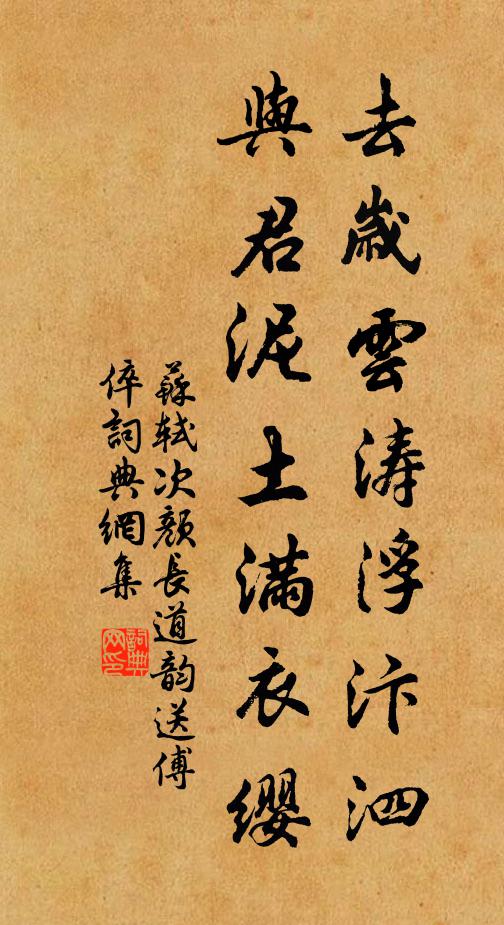 去歲雲濤浮汴泗
與君泥土滿衣纓
蘇軾次顏長道韵送傅
倅詞典網集
詞典
网印